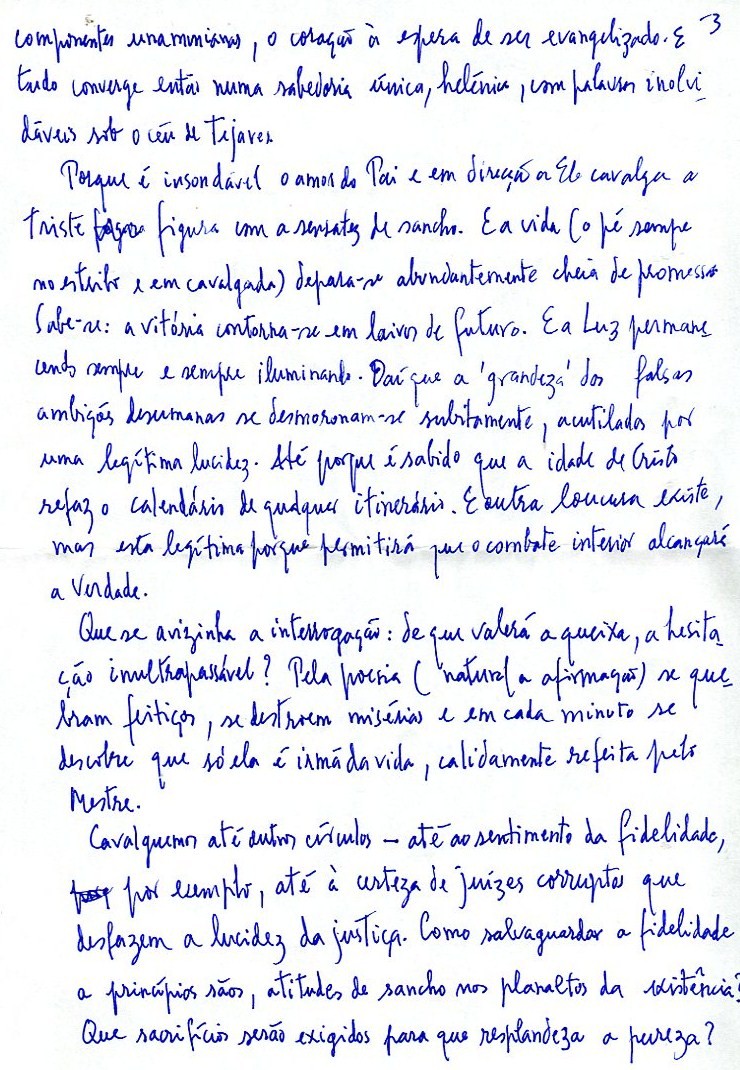 componentes unamunianas, o coração à espera de ser evangelizado. E 3
tudo converge então numa sabedoria única, helénica, com palavras inolvi-
dáveis sob o céu de Tejares.
Porque é insondável o amor do Pai e em direcção a Ele cavalga a
triste figura com a sensatez de sancho. E a vida (o pé sempre
no estribo e em cavalgada) depara-se abundantemente cheia de promessas
Sabe-se: a vitória contorna-se em laivos de futuro. E a Luz permane-
cendo sempre e sempre iluminando. Daí que a 'grandeza' dos falsas
ambições desumanas se desmoronam-se subitamente, acutilados por
uma legítima lucidez. Até porque é sabido que a idade de Cristo
refaz o calendário de qualquer itinerário. E outra loucura existe,
mas esta legítima porque permitirá que o combate interior alcançará
a Verdade.
Que se avizinha a interrogação: de que valerá a queixa, a hesita-
ção inultrapassável? Pela poesia (natural a afirmação) se que-
bram feitiços, se destroem misérias e em cada minuto se
descobre que só ela é irmã da vida, calidamente refeita pelo
Mestre.
Cavalguemos até outros círculos – até ao sentimento da fidelidade,
por exemplo, até à certeza de juízes corruptos que
desfazem a lucidez da justiça. Como salvaguardar a fidelidade
a princípios sãos, atitudes de sancho nos planaltos da existência?
Que sacrifícios serão exigidos para que resplandeza a pureza?